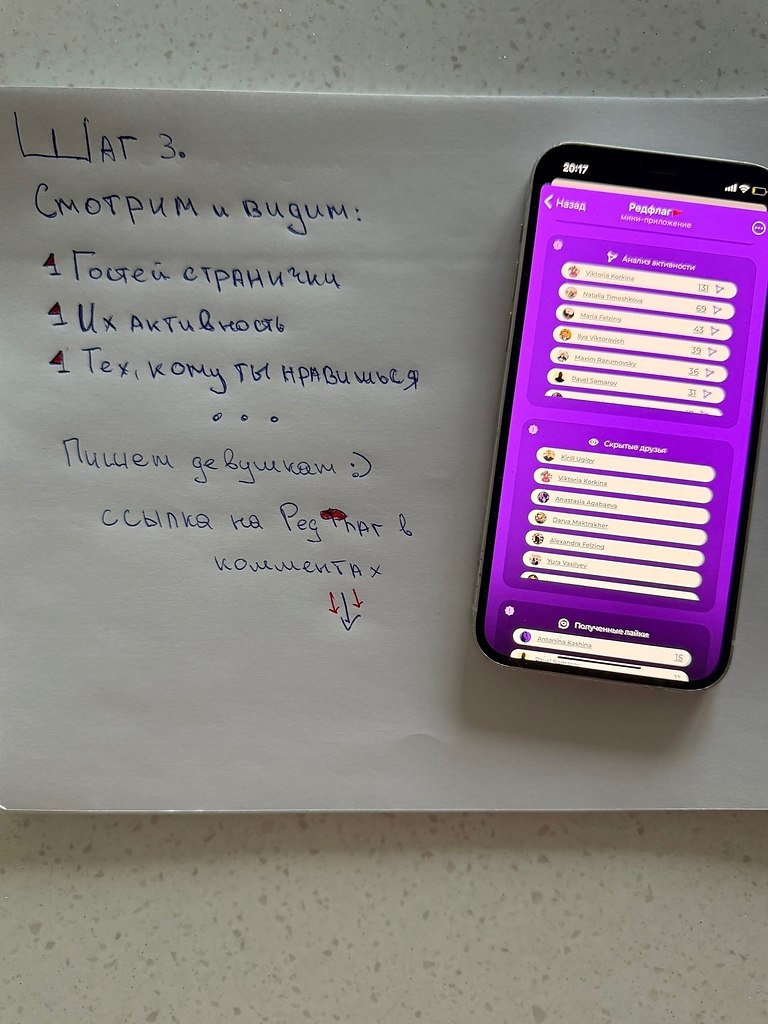 Шаг 3.
Смотрим и видим:
Гостей странички
Их активность
Тех, кому ты нравишься
...
Пишем девушкам :)
ссылка на Редфлаг в
комментах
20:17
Назад
Редфлаг
мини-приложение
Анализ активности
Viktoria Korkina 131
Natalia Timeshkova 69
Maria Felzing 43
Ilya Viktorovich 39
Maxim Razumovsky 36
Pavel Samarov 31
Скрытые друзья
Kirill Uglov
Viktoria Korkina
Anastasia Agabaeva
Darya Maktrakher
Alexandra Felzing
Yura Vasilyev
Полученные лайки
Antonina Kashina 15